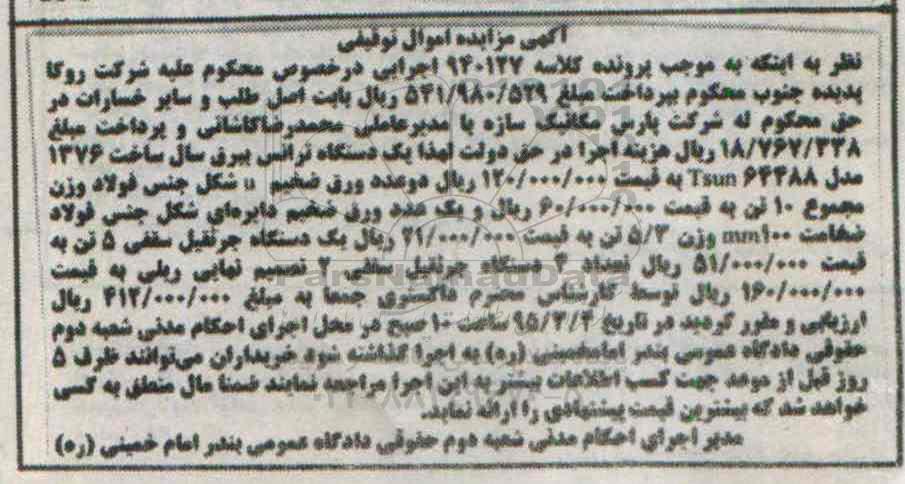 آگهی مزایده اموال توقیفی
نظر به اینکه به موجب پرونده کلاسه ۹۴۰۱۲۷ اجرایی درخصوص محکوم علیه شرکت روکا
پدیده جنوب محکوم بپرداخت مبلغ ۵۴۱/۹۸۰/۵۲۹ ریال بابت اصل طلب و سایر خسارات در
حق محکوم له شرکت پارس مکانیک سازه با مدیرعاملی محمدرضاکاشانی و پرداخت مبلغ
۱۸/۷۶۷/۳۳۸ ریال هزینه اجرا در حق دولت لهذا یک دستگاه ترانس ببرق سال ساخت ۱۳۷۶
مدل Tsun ۶۴۴۸۸ به قیمت ۱۲۰/۰۰۰/۰۰۰ ریال دوعدد ورق ضخیم u شکل جنس فولاد وزن
مجموع ۱۰ تن به قیمت ۶۰/۰۰۰/۰۰۰ ریال و یک عدد ورق ضخیم دایره‌ای شکل جنس فولاد
ضخامت ۱۰۰mm وزن ۵/۳ تن به قیمت ۲۱/۰۰۰/۰۰۰ ریال یک دستگاه جرثقیل سقفی ۵ تن به
قیمت ۵۱/۰۰۰/۰۰۰ ریال تعداد ۴ دستگاه جرثقیل سقفی ۲ تصمیم نهایی ریلی به قیمت
۱۶۰/۰۰۰/۰۰۰ ریال توسط کارشناس محترم دادگستری جمعا به مبلغ ۴۱۲/۰۰۰/۰۰۰ ریال
ارزیابی و مقرر گردید در تاریخ ۹۵/۳/۴ ساعت ۱۰ صبح در محل اجرای احکام مدنی شعبه دوم
حقوقی دادگاه عمومی بندر امام‌خمینی (ره) به اجرا گذاشته شود خریداران می‌توانند ظرف ۵
روز قبل از موعد جهت کسب اطلاعات بیشتر به این اجرا مراجعه نمایند ضمنا مال متعلق به کسی
خواهد شد که بیشترین قیمت پیشنهادی را ارائه نماید.
مدیر اجرای احکام مدنی شعبه دوم حقوقی دادگاه عمومی بندر امام خمینی (ره)
ParsNamadData